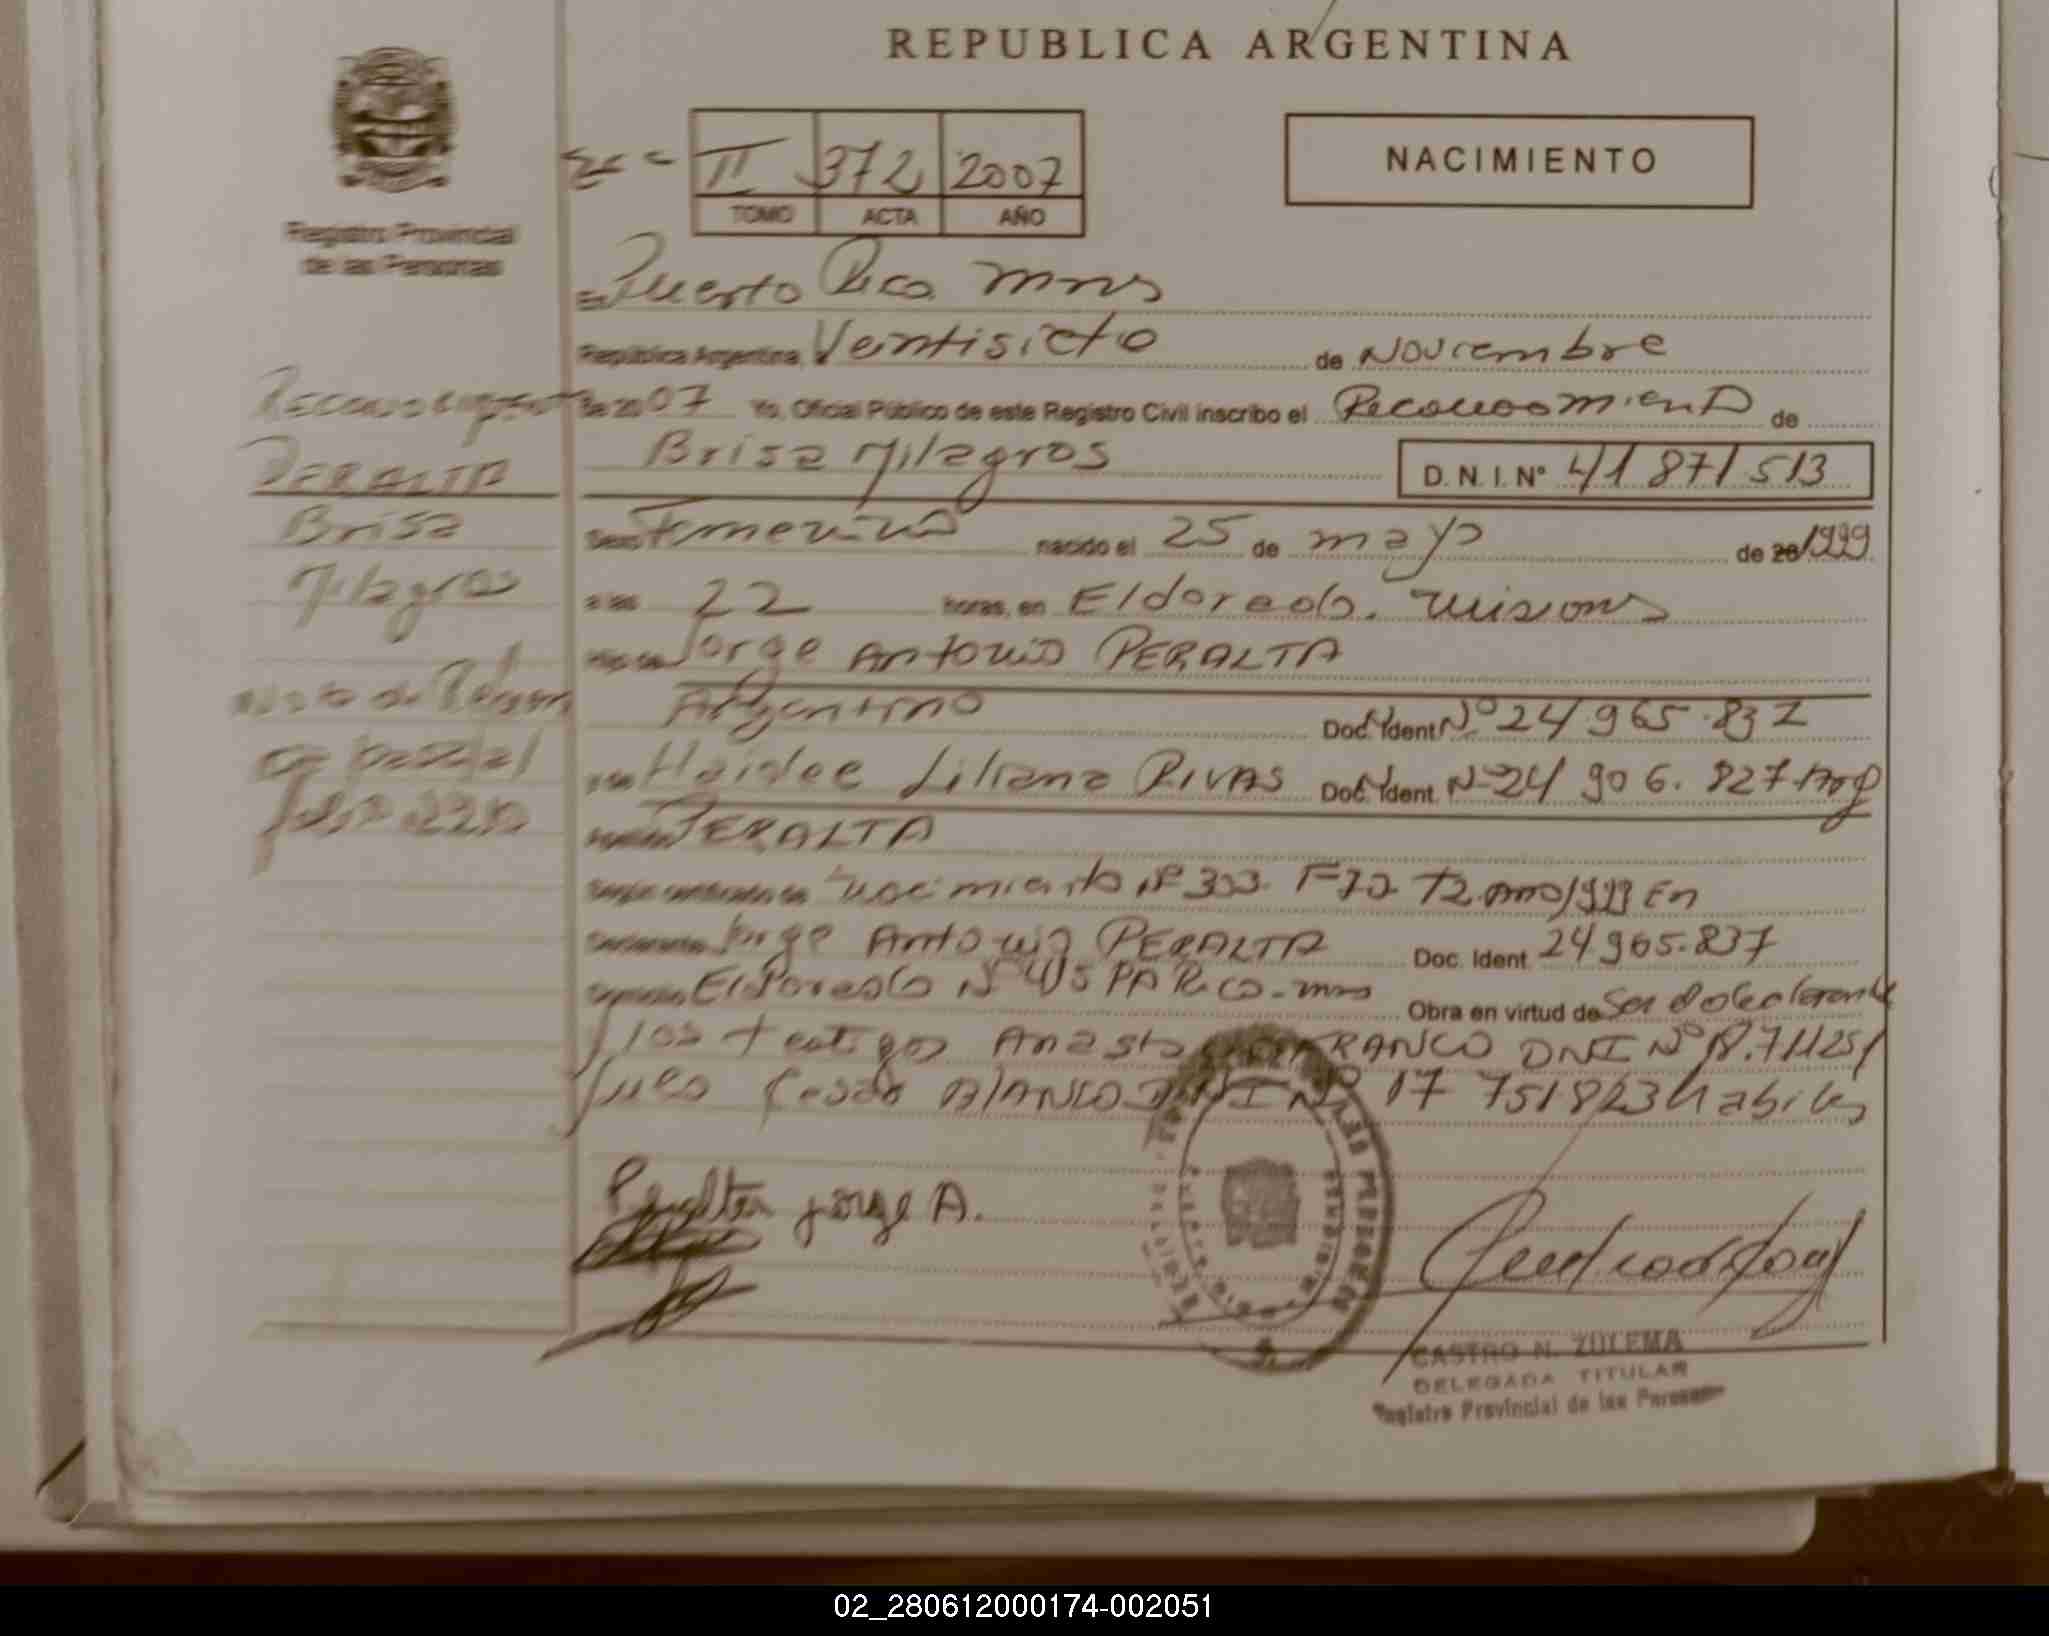 REPUBLICA ARGENTINA
II 372 2007
TOMO ACTA AÑO
NACIMIENTO
Registro Provincial
de las Personas
En Puerto Rico Mnes
República Argentina, Veintisiete de Noviembre
de 2007 Yo, Oficial Público de este Registro Civil inscribo el Reconocimiento de
Brisa Milagros D.N.I. Nº 41 871 513
Reconocimiento
PERALTA
Brisa
Milagros
Sexo Femenino nacido el 25 de mayo de 20 1999
a las 22 horas, en Eldorado. Misiones
Hijo de Jorge Antonio PERALTA
Argentino Doc. Ident Nº 24.965.837
y de Haidee Liliana RIVAS Doc. Ident. Nº 24 906.827 Arg
Nota de
Apellido PERALTA
Según certificado de Nacimiento Nº 303 F70 T2 Año 1999 En
Declarante Jorge Antonio PERALTA Doc. Ident. 24 965.837
Domicilio Eldorado Nº 415 Pto Rico - mnes Obra en virtud de Ser declarante
los testigos FRANCO DNI Nº
BLANCO DNI Nº 17 751823 habiles
Peralta Jorge A.
CASTRO N. ZULEMA
DELEGADA TITULAR
Registro Provincial de las Personas
02_280612000174-002051